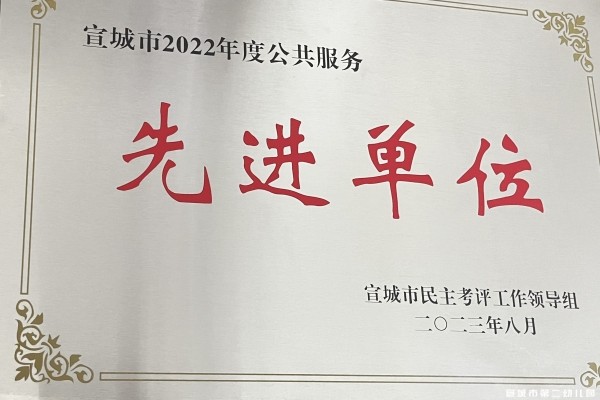 宣城市2022年度公共服务
先进单位
宣城市民主考评工作领导组
二〇二三年八月